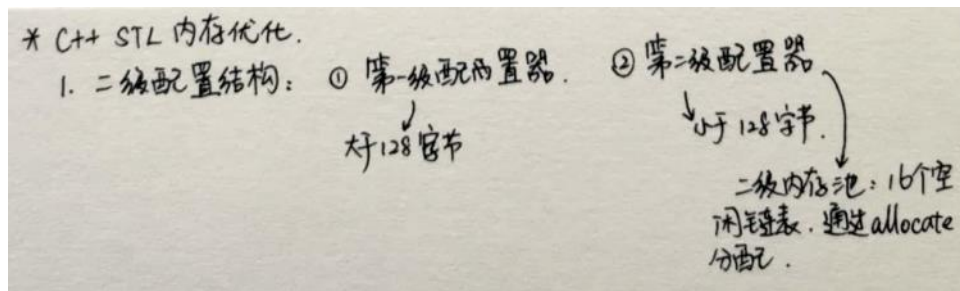 * C++ STL 内存优化.
1. 二级配置结构: ① 第一级配置器. ② 第二级配置器.
大于128字节
小于128字节.
二级内存池: 16个空
闲链表. 通过allocate
分配.